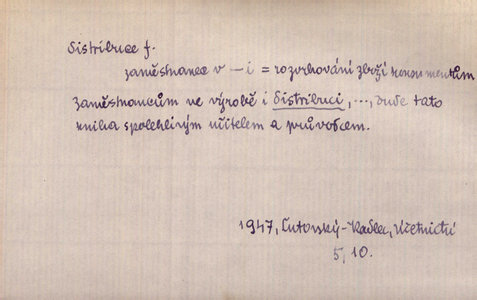 distribuce f.
zaměstnance v – i = rozvrhování zboží konsumentům
zaměstnancům ve výrobě i distribuci, ..., bude tato
kniha spolehlivým učitelem a průvodcem.
1947, Lutovský-Kadlec, Účetnictví
5, 10.